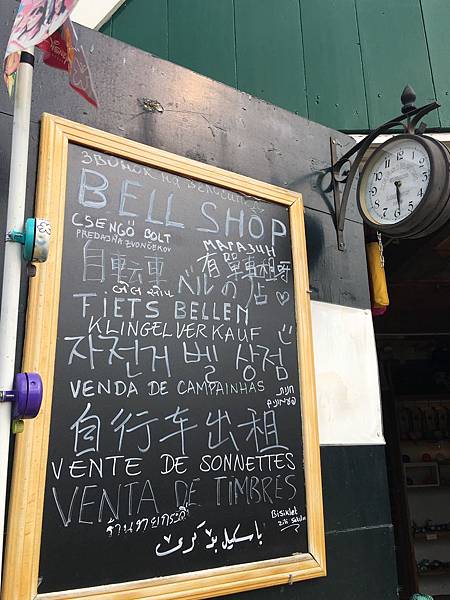 ЗВОНОК НА ВЕЛОСИПЕД
BELL SHOP
CSENGŐ BOLT
PREDAJŇA ZVONČEKOV
МАГАЗИН
自転車
ベルの店
有單車出租呀
ઘંટ સ્ટોર
FIETS BELLEN
KLINGELVERKAUF
자전거 벨 상점
VENDA DE CAMPAINHAS
חנות
פעמונים
自行车出租
VENTE DE SONNETTES
VENTA DE TIMBRES
ร้านขายกระดิ่ง
Bisiklet
zili satılır